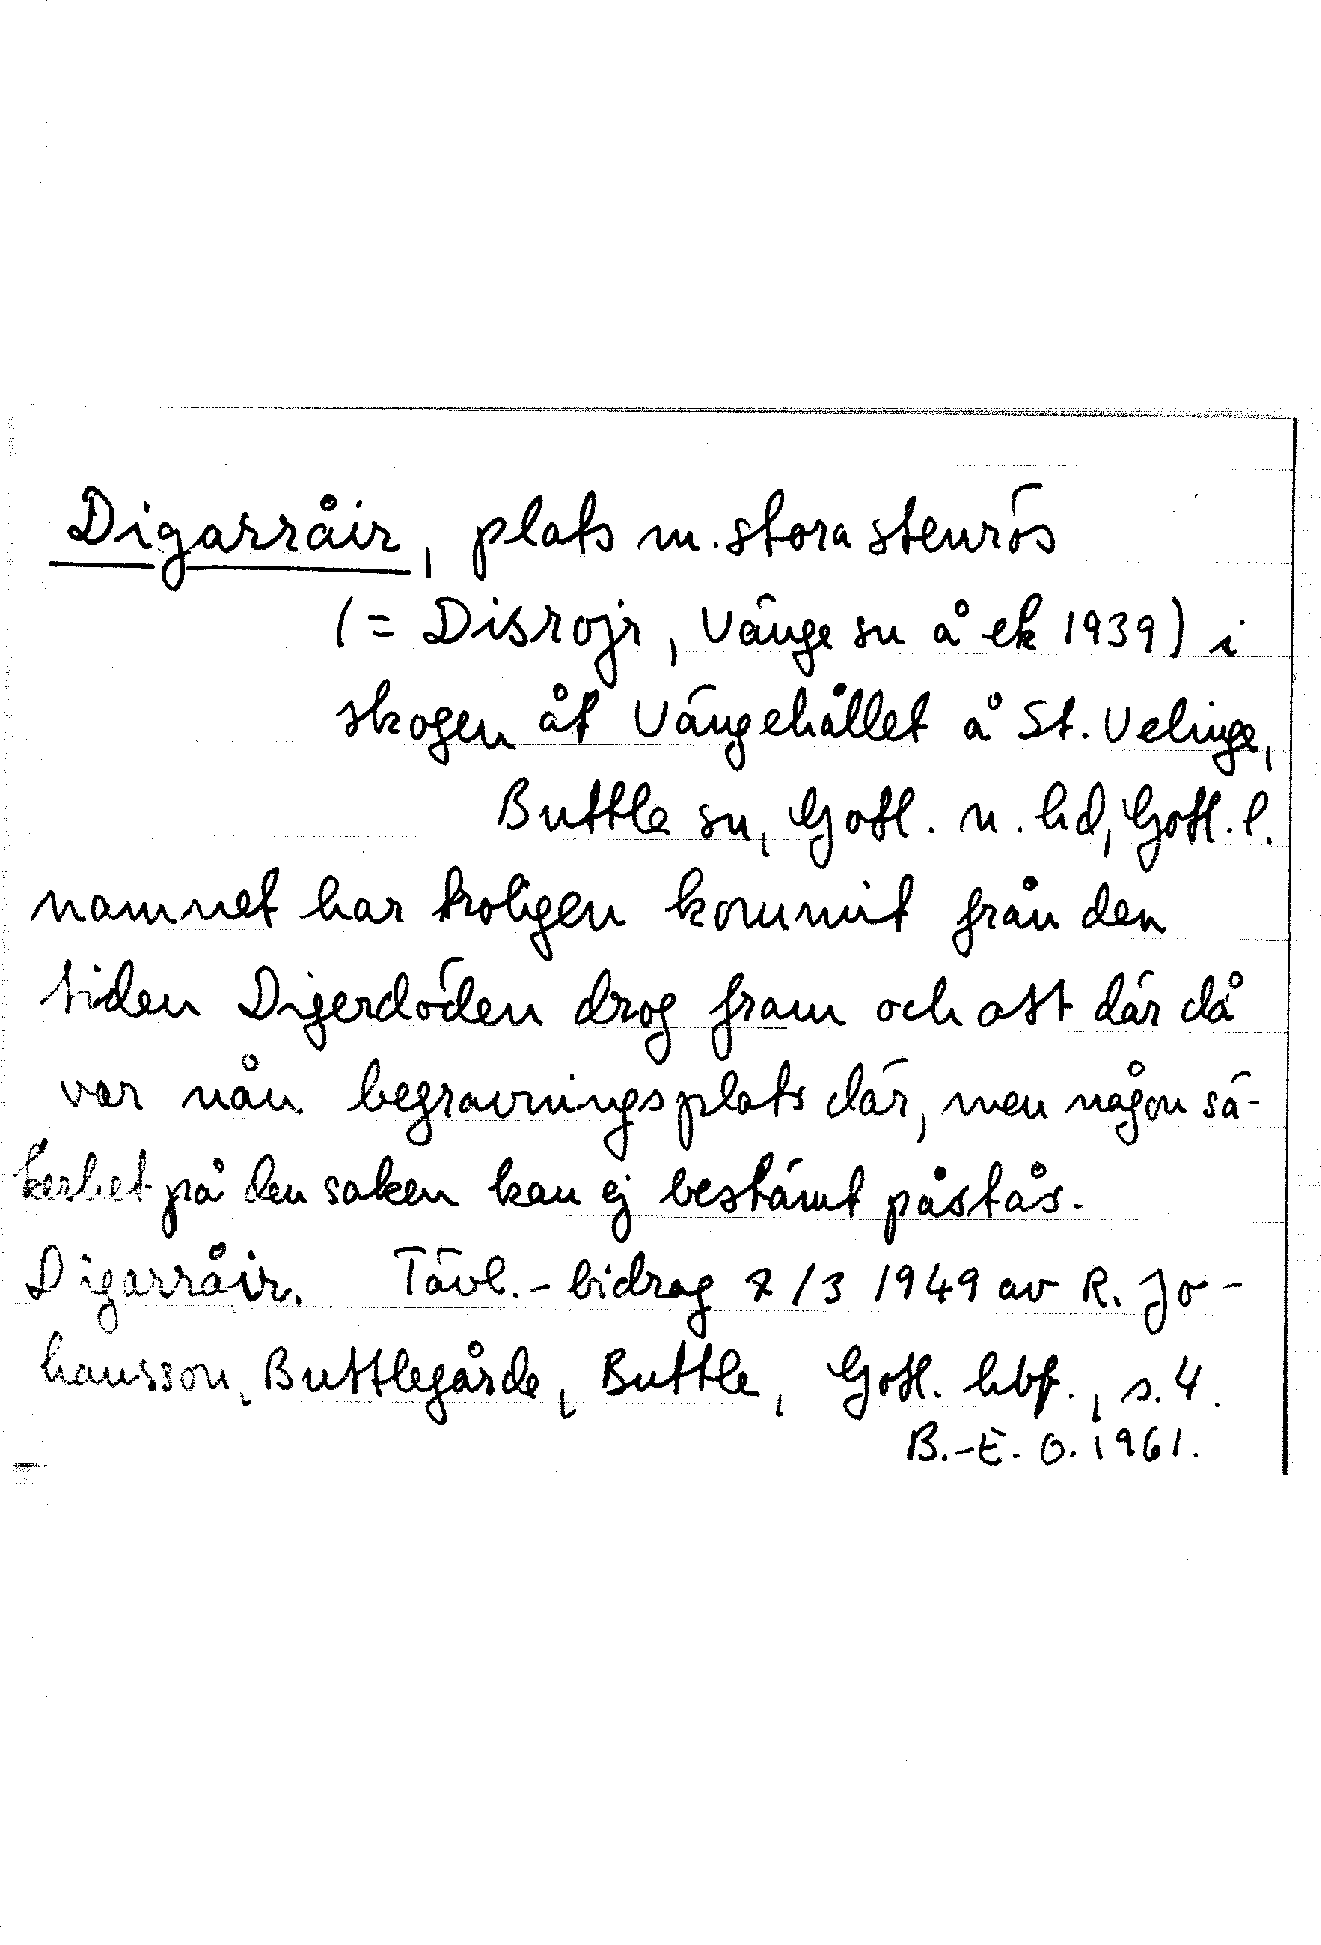 Digarråir, plats m. stora stenrös
(= Disrojr, Vänge sn å ek 1939) i
skogen åt Vängehållet å St. Velinge,
Buttle sn, Gotl. n. hd, Gotl. l.
namnet har troligen kommit från den
tiden Digerdöden drog fram och att där då
var nån begravningsplats där, men någon sä-
kerhet på den saken kan ej bestämt påstås.
Digarråir. Tävl.-bidrag /3 1949 av R. Jo-
hansson, Buttlegårde, Buttle, Gotl. hbf., s. 4.
B.-E. O. 1961.